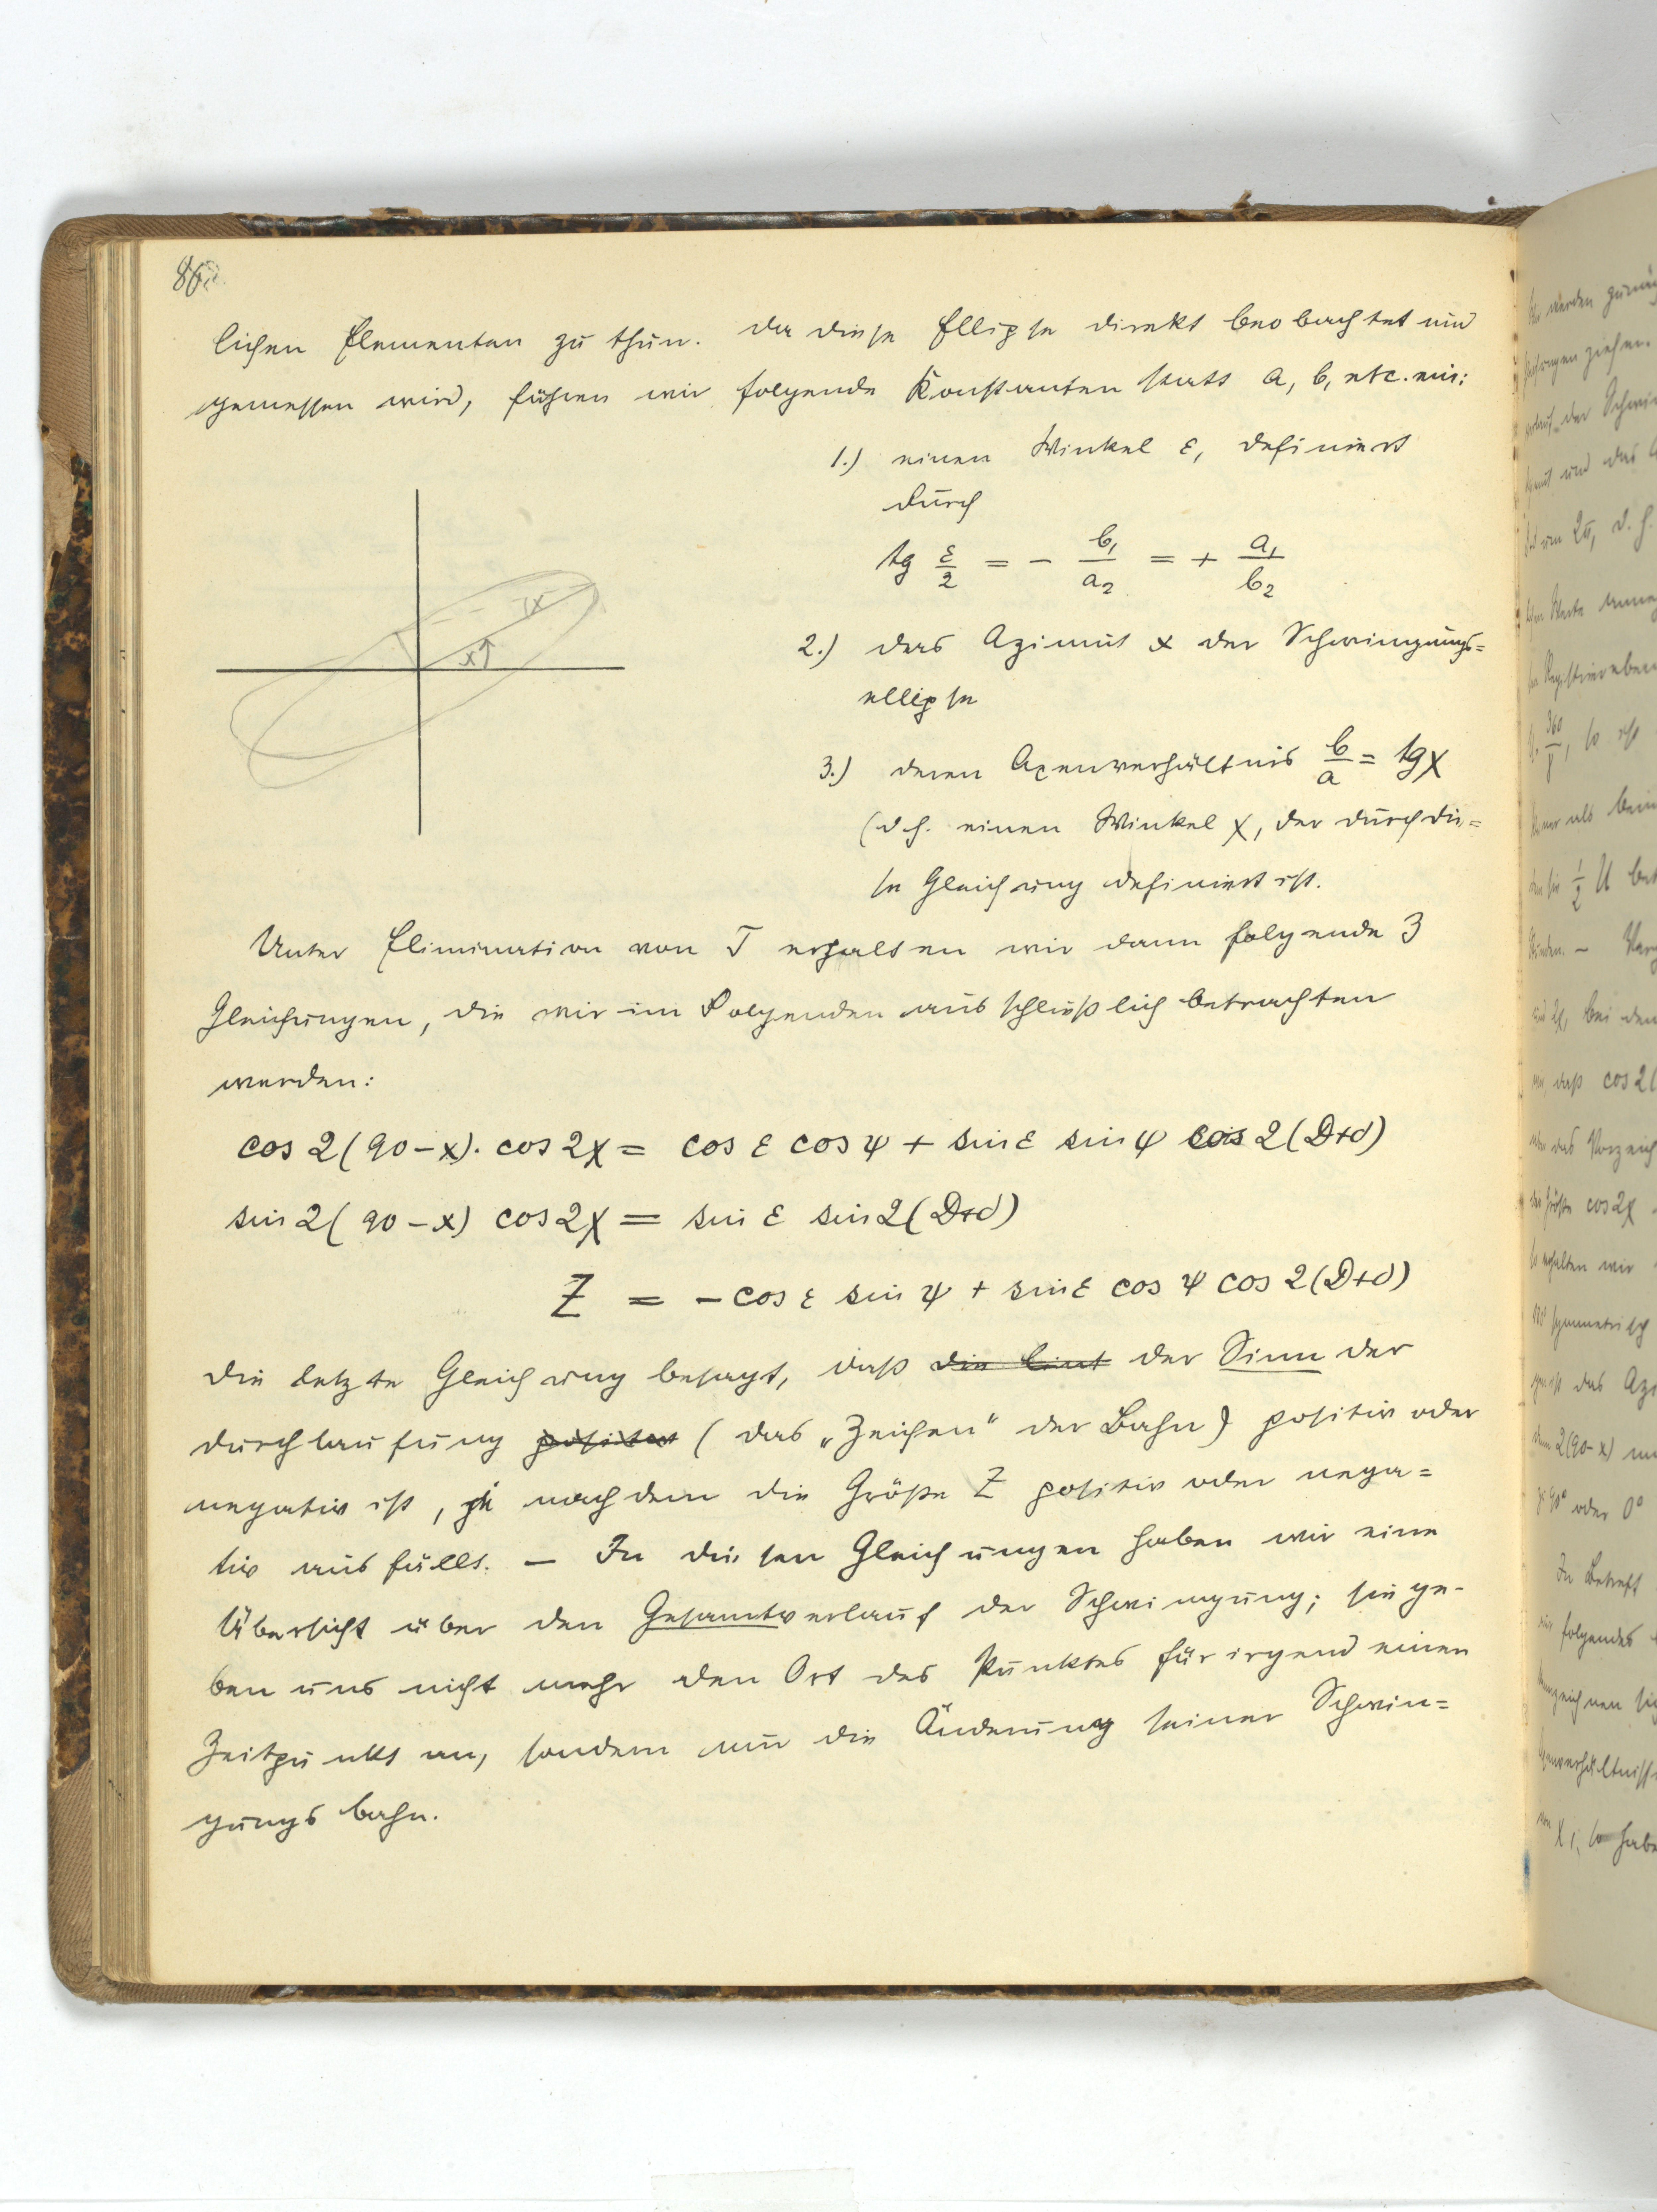 86.
lichen Elementen zu thun. Da diese Ellipse direkt beobachtet und
gemessen wird, führen wir folgende Konstanten statt a, b, etc. ein:
1.) einen Winkel ε, definiert
durch
tg ε/2 = − b₁/a₂ = + a₁/b₂
2.) das Azimut x der Schwingungs=
ellipse
3.) deren Axenverhältnis b/a = tg χ
(d. h. einen Winkel χ, der durch die=
se Gleichung definiert ist.
χ
x
Unter Elimination von T erhalten wir dann folgende 3
Gleichungen, die wir im Folgenden ausschließlich betrachten
werden:
cos 2(90−x). cos 2χ = cos ε cos ψ + sin ε sin ψ cos 2(D+d)
sin 2(90−x) cos 2χ = sin ε sin 2(D+d)
Z = −cos ε sin ψ + sin ε cos ψ cos 2(D+d)
Die letzte Gleichung besagt, daß der Sinn der
Durchlaufung (das „Zeichen“ der Bahn) positiv oder
negativ ist, je nachdem die Größe Z positiv oder nega=
tiv ausfällt. − In diesen Gleichungen haben wir eine
Übersicht über den Gesamtverlauf der Schwingung; sie ge-
ben uns nicht mehr den Ort des Punktes für irgend einen
Zeitpunkt an, sondern nur die Änderung seiner Schwin=
gungsbahn.